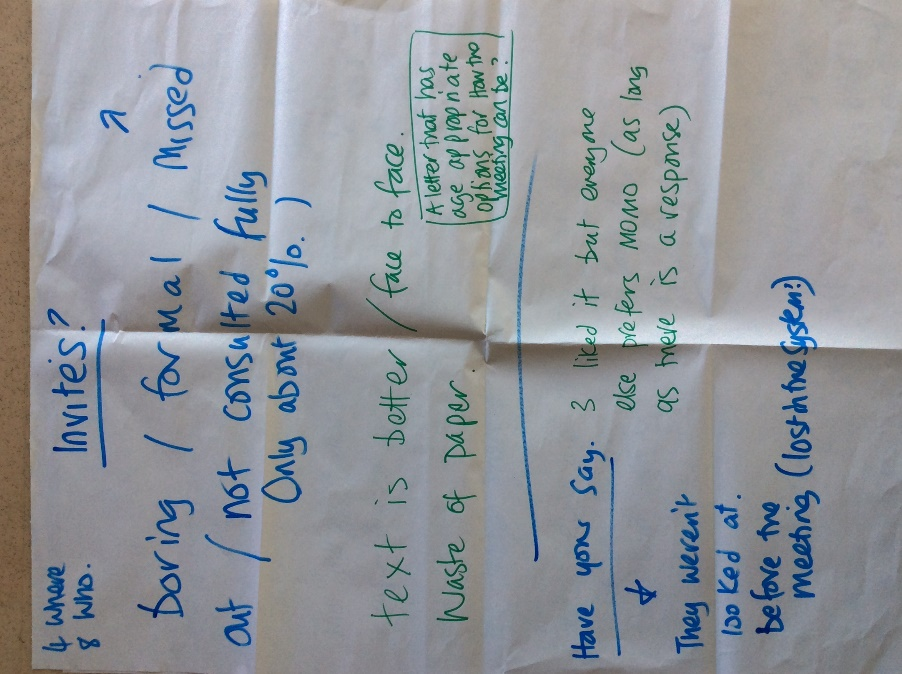 4 where
8 who.
Invites?
boring / formal / Missed
out / not consulted fully
Only about 20%.)
text is better / face to face.
Waste of paper.
A letter that has
age appropriate
options for how the
meeting can be?
Have your say. 3 liked it but everyone
else prefers MOMO (as long
as there is a response)
They weren't
looked at.
before the
meeting (lost in the system?)